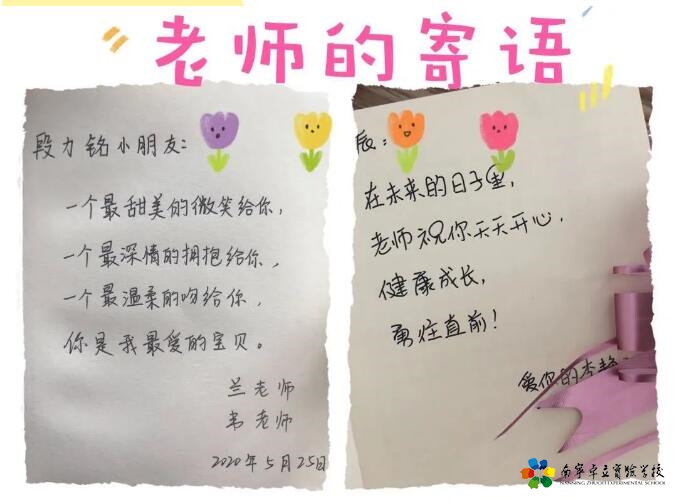 老师的寄语
段力铭小朋友：
一个最甜美的微笑给你，
一个最深情的拥抱给你，
一个最温柔的吻给你，
你是我最爱的宝贝。
兰老师
韦老师
2020年5月25日
辰：
在未来的日子里，
老师祝你天天开心，
健康成长，
勇往直前！
爱你的李
南宁卓立实验学校
NANNING ZHUOLI EXPERIMENTAL SCHOOL